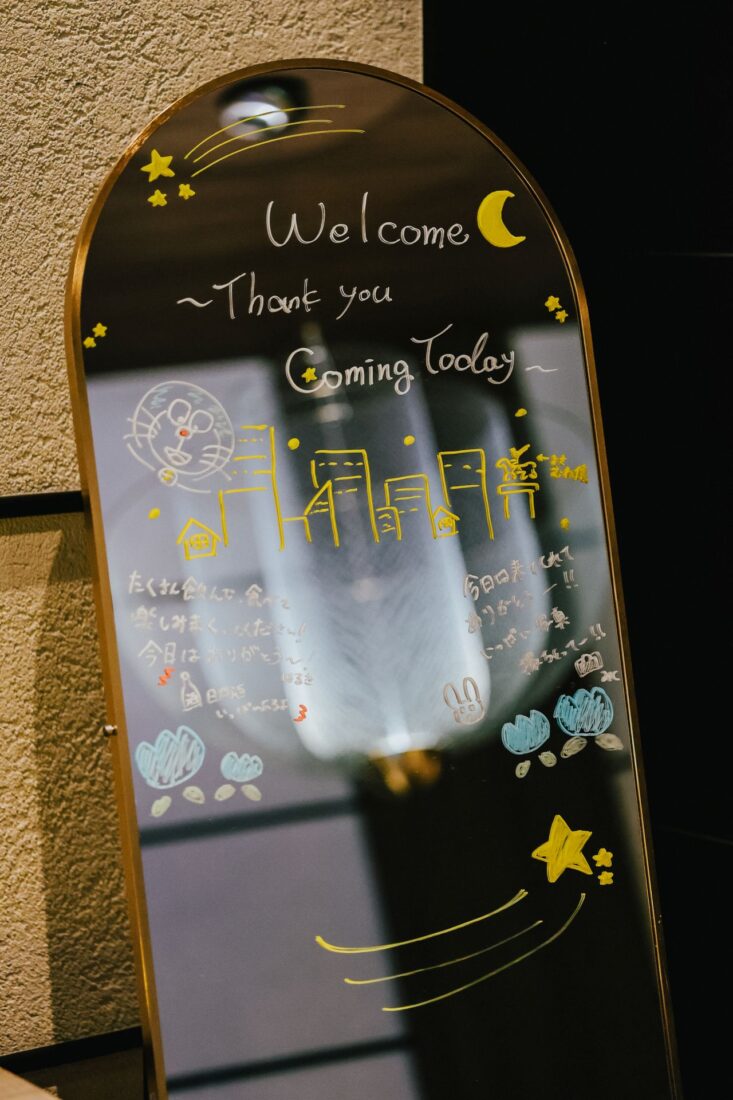 Welcome
~Thank you
Coming Today~
たくさん飲んで、食べて
楽しみまくってください!
今日はありがとう〜!
はるき
日本酒
いっぱいあるよ
今日は来てくれて
ありがとう〜!!
いっぱい写真
撮ろうて〜!!